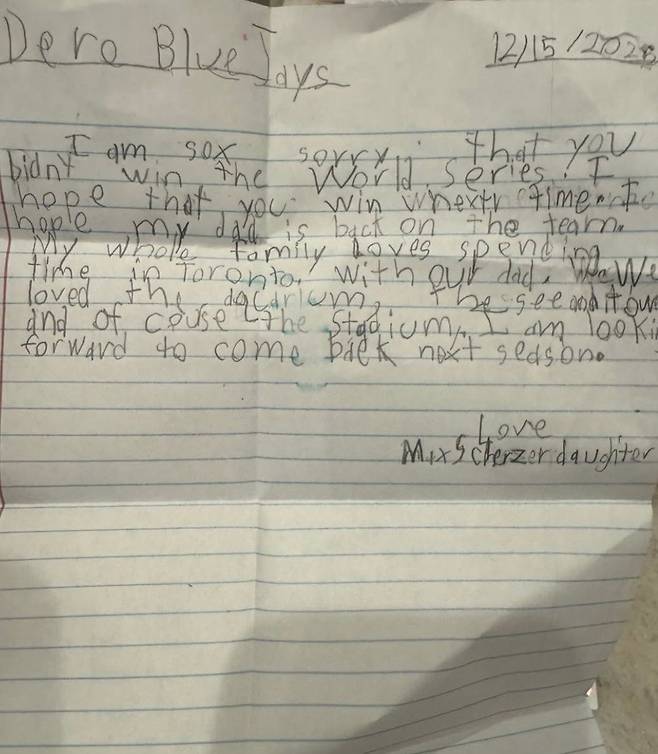 Dero Blue Jays
12/15/2025
I am sox sorry that you
bidnt win the World series. I
hope that you win wnextr time. I
hople my dad is back on the team.
My whole family Loves spending
time in Toronto, with our dad. We We
loved the aqcarium, the see and tow
and of couse the Stadium. I am looki
forward to come back next season.
Love
Max Scherzer daughter